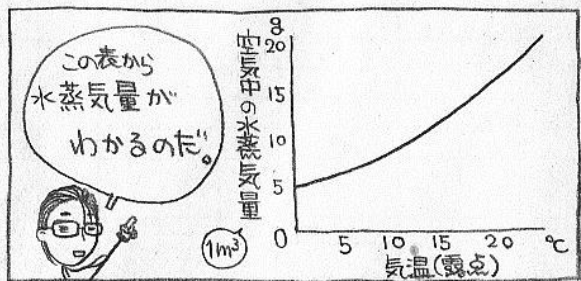 この表から
水蒸気量が
わかるのだ。
空気中の水蒸気量
1m³
g
20
15
10
5
0
5
10
15
20
℃
気温(露点)